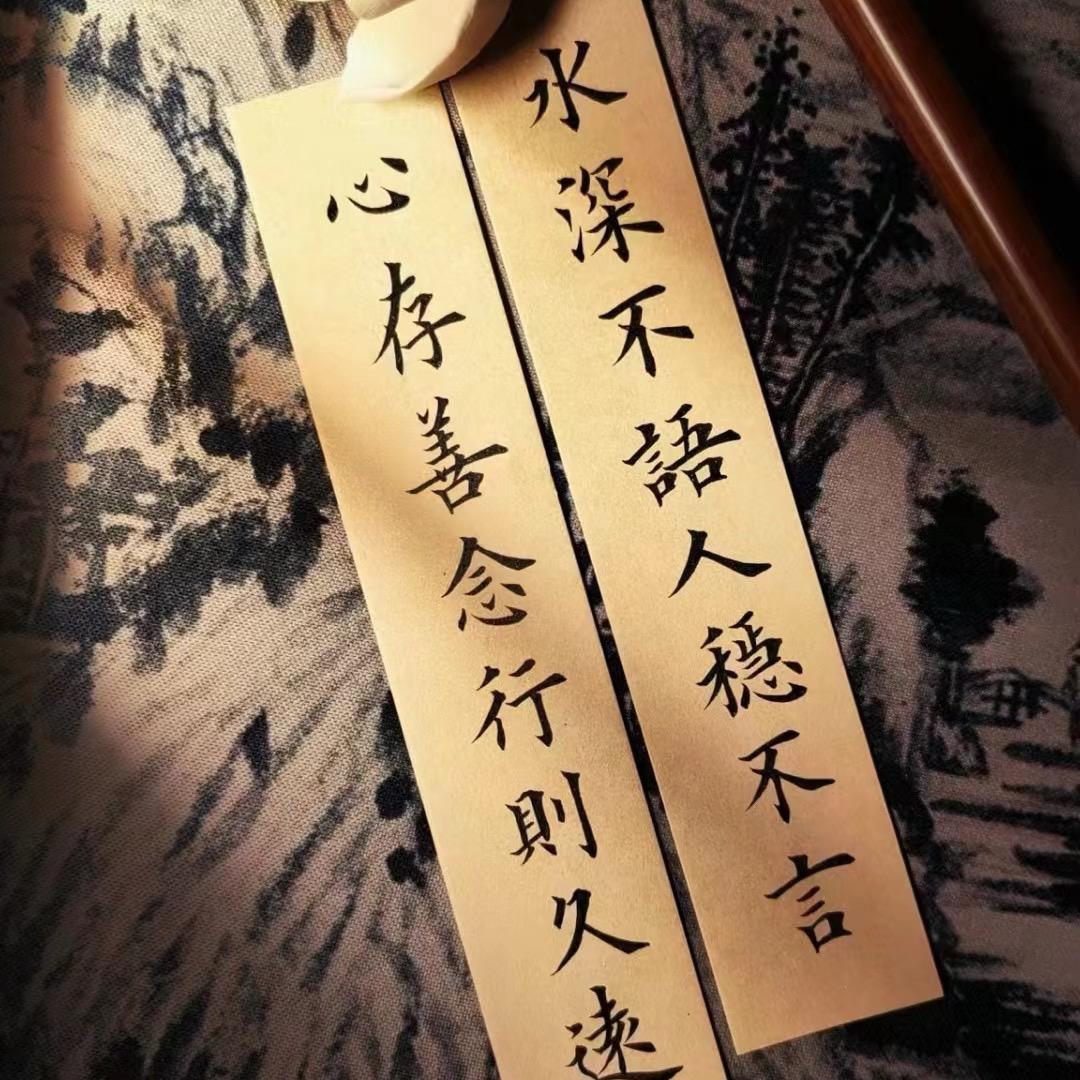 水深不語人穩不言
心存善念行則久遠